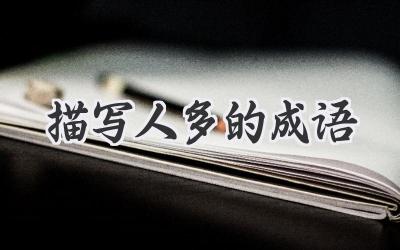 描写人多的成语